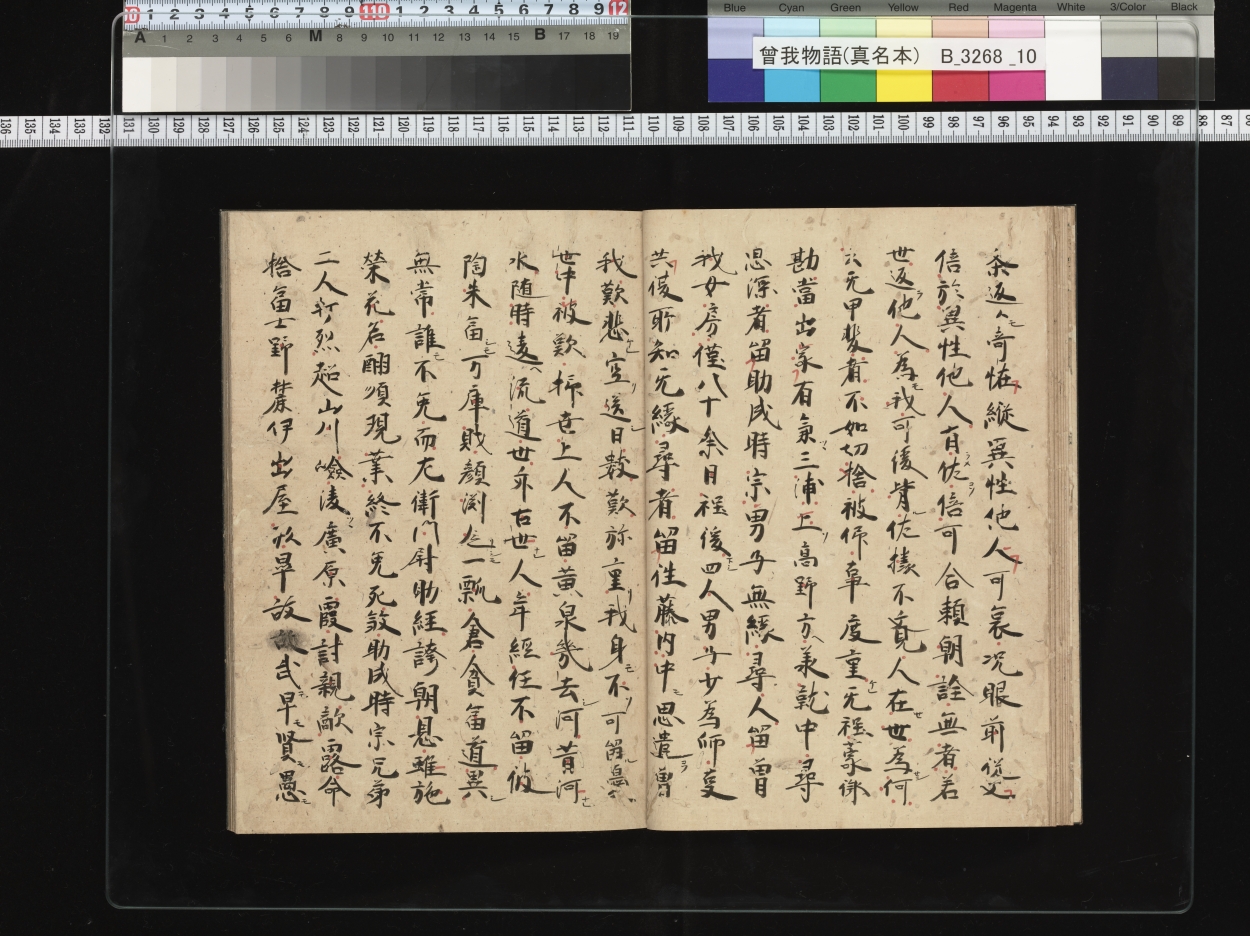 曾我物語(真名本) B_3268_10
Blue Cyan Green Yellow Red Magenta White 3/Color Black
余返々奇恠縦異性他人可哀况眼前従父
信於異性他人有佐信可合頼朝詮無者若
世返他人為我可後背佐様不覚人在世為何
云无甲斐者不如切捨被仰事度重无程蒙御
勘當出家有氣三浦上高野方美乾中尋
思深者留助成時宗男子無縁尋人留曽
我女房僅八十余日程後四人男子少為師度
共後所知无縁尋者留性藤内中思遣曽
我歎悲空送日数歎弥重我身不可
世中被歎抑世上人不留黄泉幾去河黄河
水随時遠流道世亦古世人年經任不留彼
陶朱冨万庫財顔渕一瓢倉貧冨道異
無常誰不免而左衛門尉助經誇朝恩雖施
榮花名酬順現業終不免死敵助成時宗兄弟
二人打烈超山川嶮凌廣原霞討親敵露命
捨冨士野麓伊出屋形早故武早賢愚